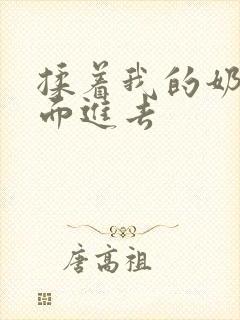 揉着我的奶
而进去
唐高祖